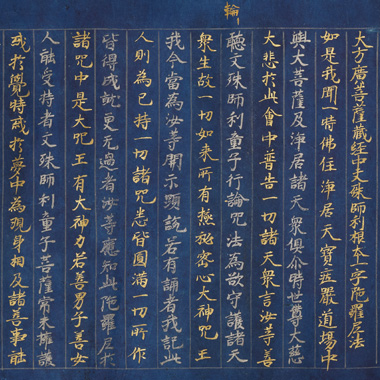 輪
大方廣菩薩藏經中文殊師利根本一字陀羅尼法
如是我聞一時佛住淨居天寶莊嚴道場中
與大菩薩及淨居諸天衆俱尒時世尊大慈
大悲於此會中普告一切諸天衆言汝等善
聽文殊師利童子行論咒法為欲守護諸天
衆生故一切如來所有極秘密心大神咒王
我今當為汝等開示顯說若有誦者我記此
人則為已持一切諸咒悉皆圓滿一切所作
皆得成就更无過者汝等應知此陀羅尼於
諸咒中是大咒王有大神力若善男子善女
人能受持者文殊師利童子菩薩常來擁護
或於覺時或於夢中為現身相及諸善事能